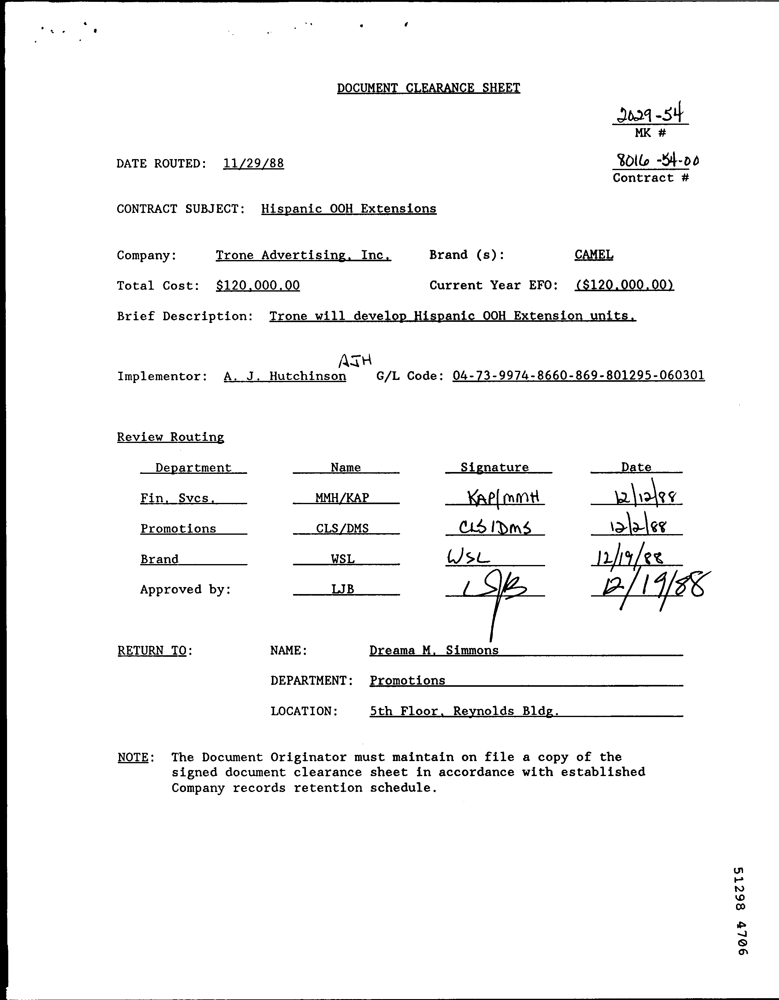 DOCUMENT CLEARANCE SHEET
2029-54
MK #
DATE ROUTED: 11/29/88
8016 -54-00
Contract #
CONTRACT SUBJECT: Hispanic OOH Extensions
Company: Trone Advertising, Inc. Brand (s): CAMEL
Total Cost: $120,000.00 Current Year EFO: ($120,000.00)
Brief Description: Trone will develop Hispanic OOH Extension units.
AJH
Implementor: A. J. Hutchinson G/L Code: 04-73-9974-8660-869-801295-060301
Review Routing
Department Name Signature Date
Fin. Svcs. MMH/KAP KAP/MMH 12/12/88
Promotions CLS/DMS CLS/DMS 12/2/88
Brand WSL WSL 12/19/88
Approved by: LJB LJB 12/19/88
RETURN TO: NAME: Dreama M. Simmons
DEPARTMENT: Promotions
LOCATION: 5th Floor, Reynolds Bldg.
NOTE: The Document Originator must maintain on file a copy of the
signed document clearance sheet in accordance with established
Company records retention schedule.
51298 4706